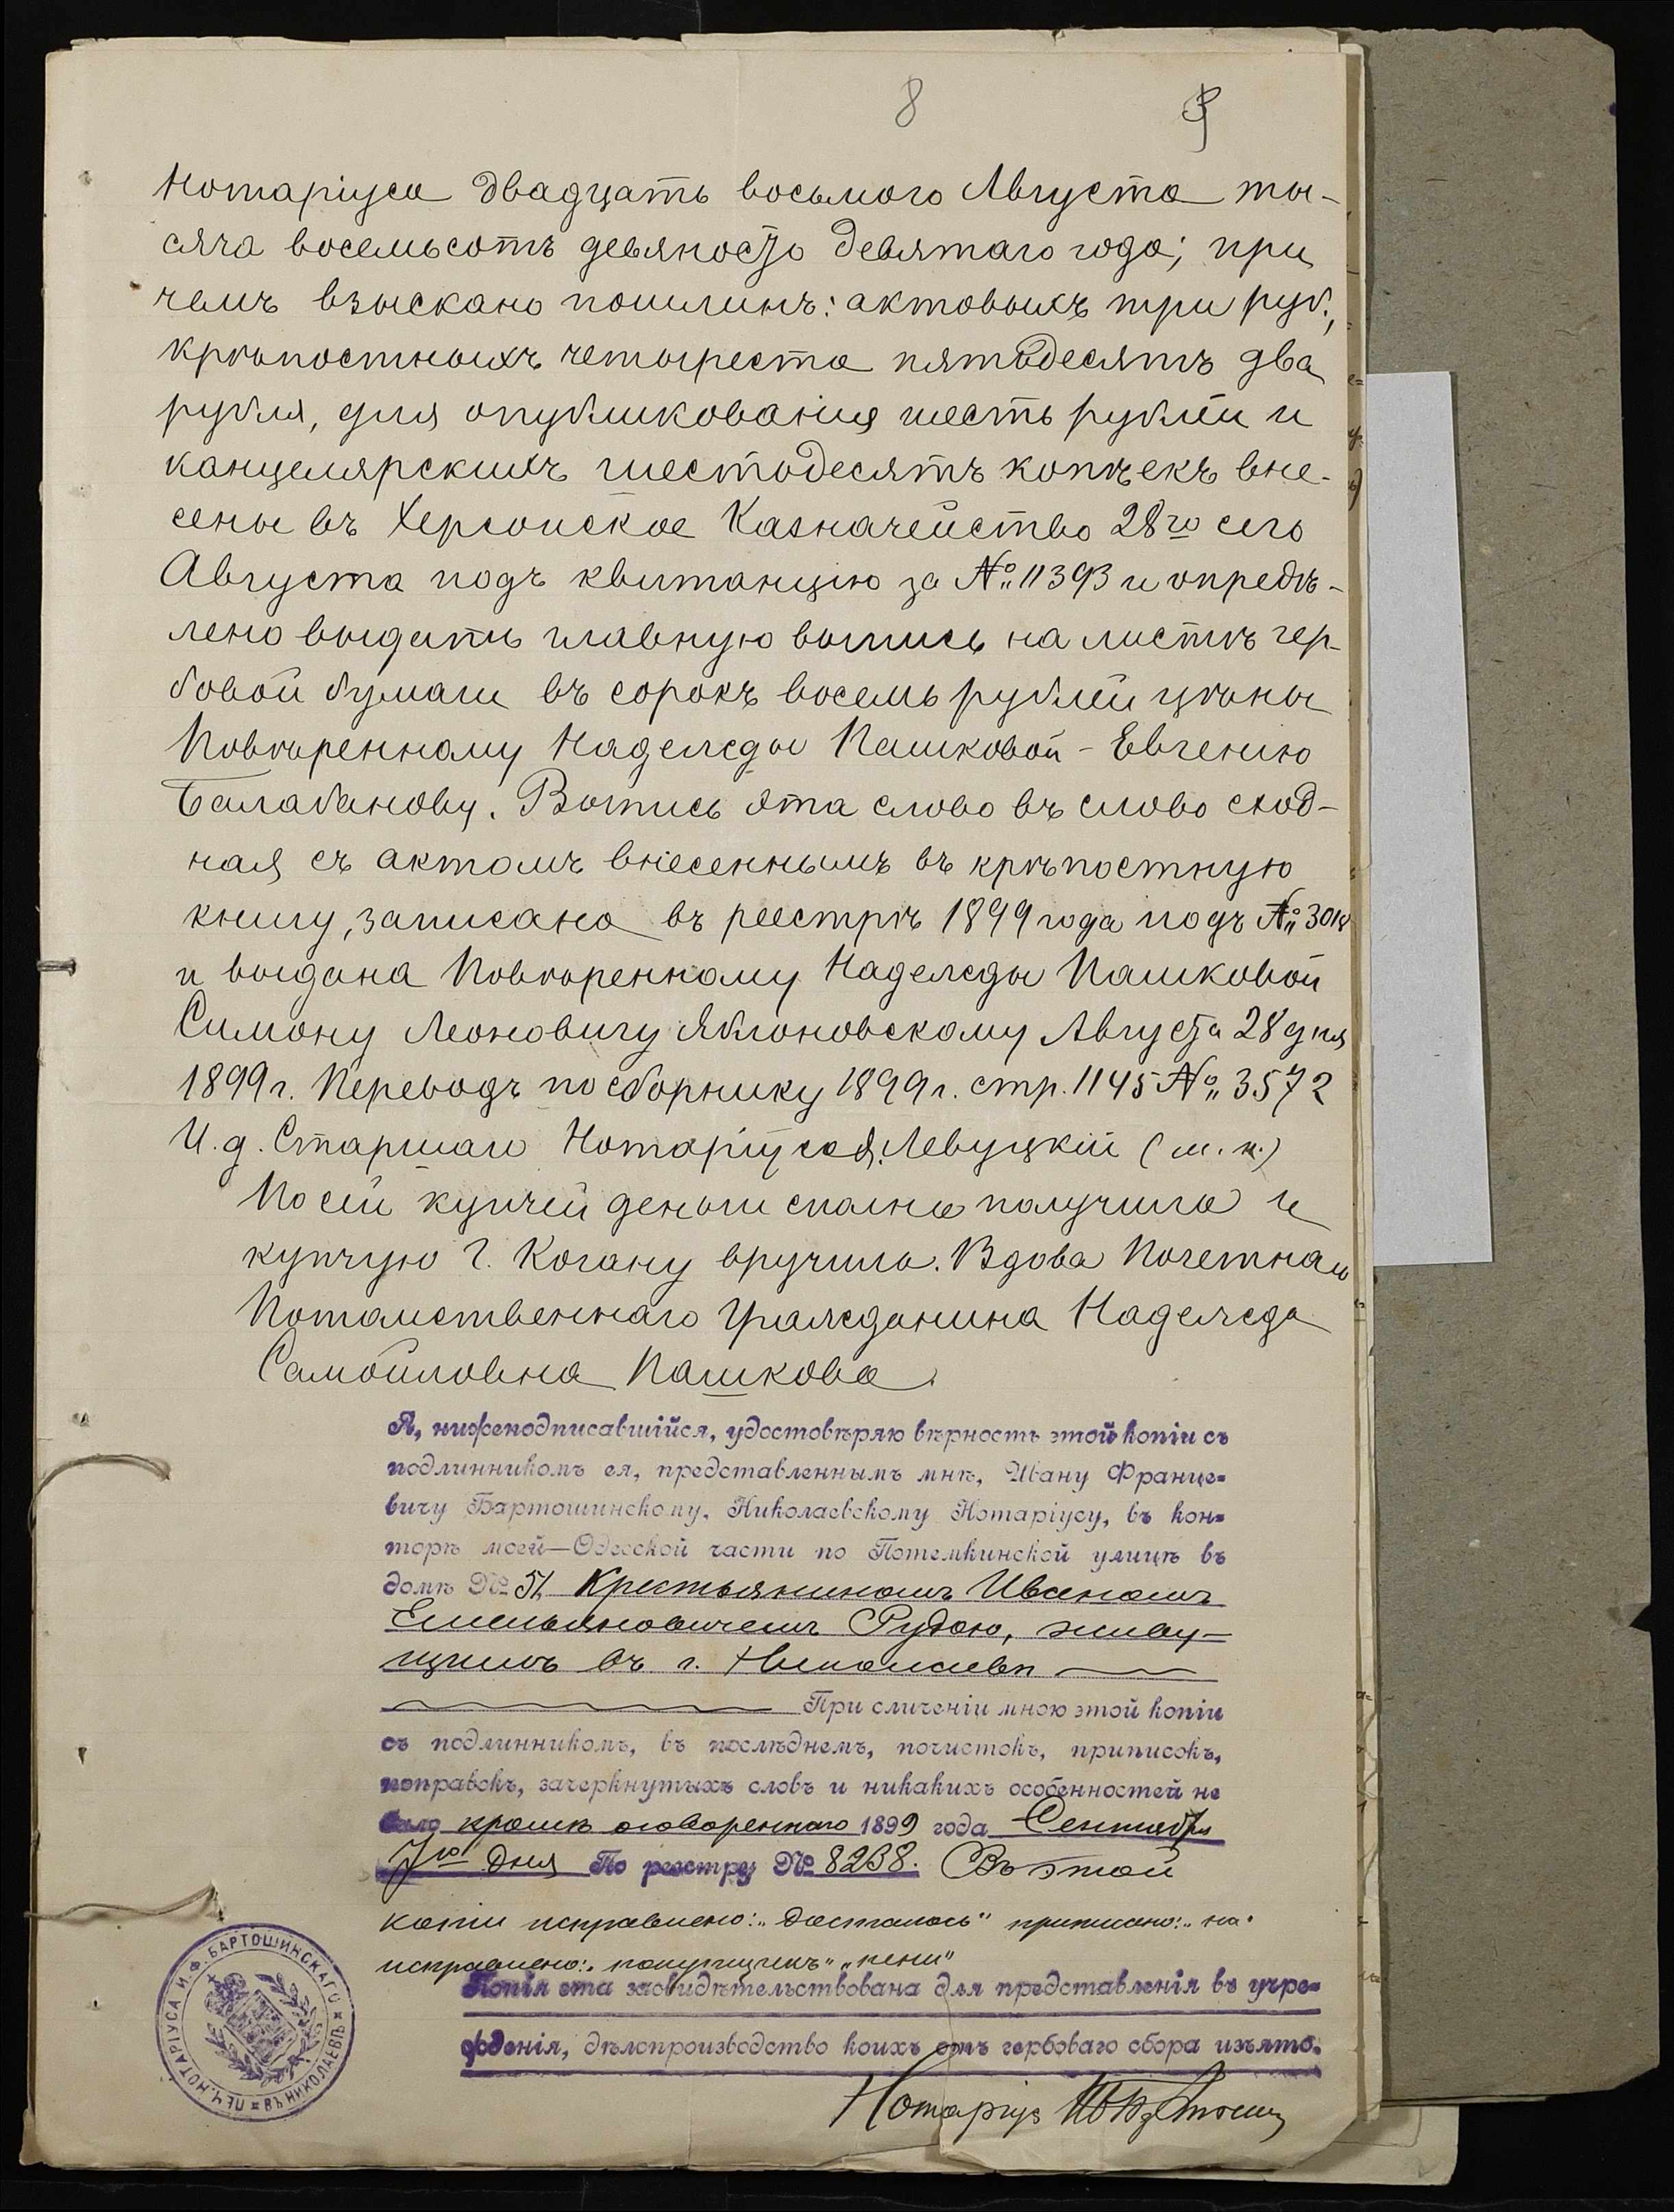 8 9
Нотаріуса двадцать восьмого Августа ты-
сяча восемьсотъ девяносто девятаго года; при
чемъ взыскано пошлинъ: актовыхъ три руб.,
крѣпостныхъ четыреста пятьдесятъ два
рубля, для опубликованія шесть рублей и
канцелярскихъ шестьдесятъ копѣекъ вне-
сены въ Херсонское Казначейство 28го сего
Августа подъ квитанцію за № 11393 и опредѣ-
лено выдать главную выпись на листѣ гер-
бовой бумаги въ сорокъ восемь рублей цѣны
Повѣренному Надежды Пашковой - Евгенію
Балабанову. Выпись эта слово въ слово сход-
ная съ актомъ внесеннымъ въ крѣпостную
книгу, записана въ реестрѣ 1899 года подъ №
и выдана Повѣренному Надежды Пашковой
Симону Леоновичу Яблоновскому Августа 28 дня
1899 г. Переводъ по сборнику 1899 г. стр. 1145 № 3572
И. д. Старшаго Нотаріуса Я. Левуцкій (м. п.)
По сей купчей деньги сполна получила и
купчую Г. Когану вручила. Вдова Почетнаго
Потомственнаго Гражданина Надежда
Самойловна Пашкова.
Я, нижеподписавшійся, удостовѣряю вѣрность этой копіи съ
подлинникомъ ея, представленнымъ мнѣ, Ивану Франце=
вичу Бартошинскому, Николаевскому Нотаріусу, въ кон=
торѣ моей—Одесской части по Потемкинской улицѣ въ
домѣ № 51, Крестьяниномъ Иваномъ
Емельяновичемъ Рудою, живу-
щимъ въ г. Николаевѣ
При сличеніи мною этой копіи
съ подлинникомъ, въ послѣднемъ, почистокъ, приписокъ,
поправокъ, зачеркнутыхъ словъ и никакихъ особенностей не
было кромѣ оговореннаго 1899 года Сентября
7го дня По реестру № 8238. Въ этой
копіи исправлено: „досталось" приписано: „на"
исправлено: „покупщикъ" „пени"
Копія эта засвидѣтельствована для представленія въ учре=
жденія, дѣлопроизводство коихъ отъ гербоваго сбора изъято.
Нотаріусъ
ПЕЧ. НОТАРІУСА И. Ф. БАРТОШИНСКАГО ВЪ НИКОЛАЕВѢ